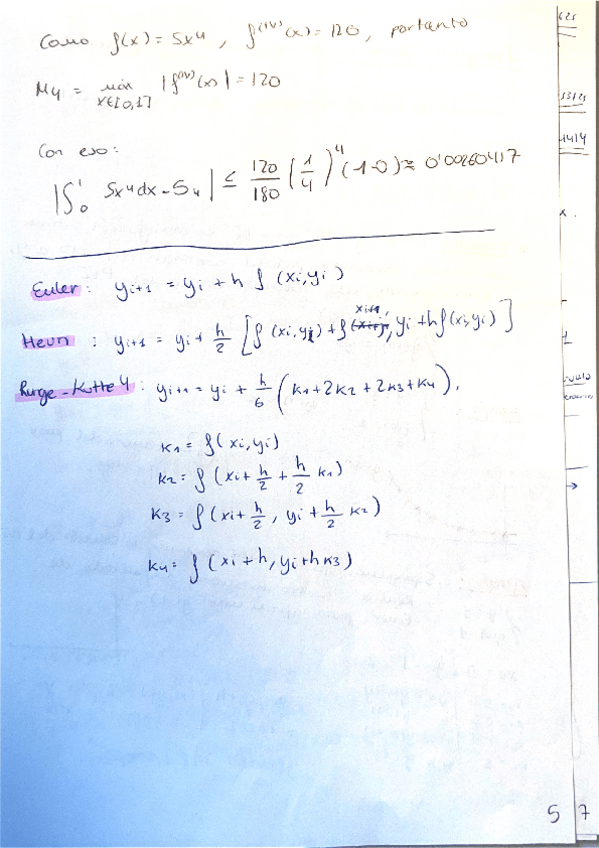 Como f(x) = 5x⁴, f⁽ⁱᵛ⁾(x) = 120, portanto
M₄ = máx |f⁽ⁱᵛ⁾(x)| = 120
x∈[0,1]
Con eso:
|∫₀¹ 5x⁴dx - S₄| ≤ 120/180 (1/4)⁴ (1-0) ≈ 0'00260417
Euler: yᵢ₊₁ = yᵢ + h f(xᵢ,yᵢ)
Heun: yᵢ₊₁ = yᵢ + h/2 [f(xᵢ,yᵢ) + f(xᵢ₊₁, yᵢ + hf(xᵢ,yᵢ)]
Runge-Kutte 4: yᵢ₊₁ = yᵢ + h/6 (k₁+2k₂+2k₃+k₄),
k₁ = f(xᵢ,yᵢ)
k₂ = f(xᵢ + h/2 + h/2 k₁)
k₃ = f(xᵢ + h/2, yᵢ + h/2 k₂)
k₄ = f(xᵢ+h, yᵢ+hk₃)
5
7